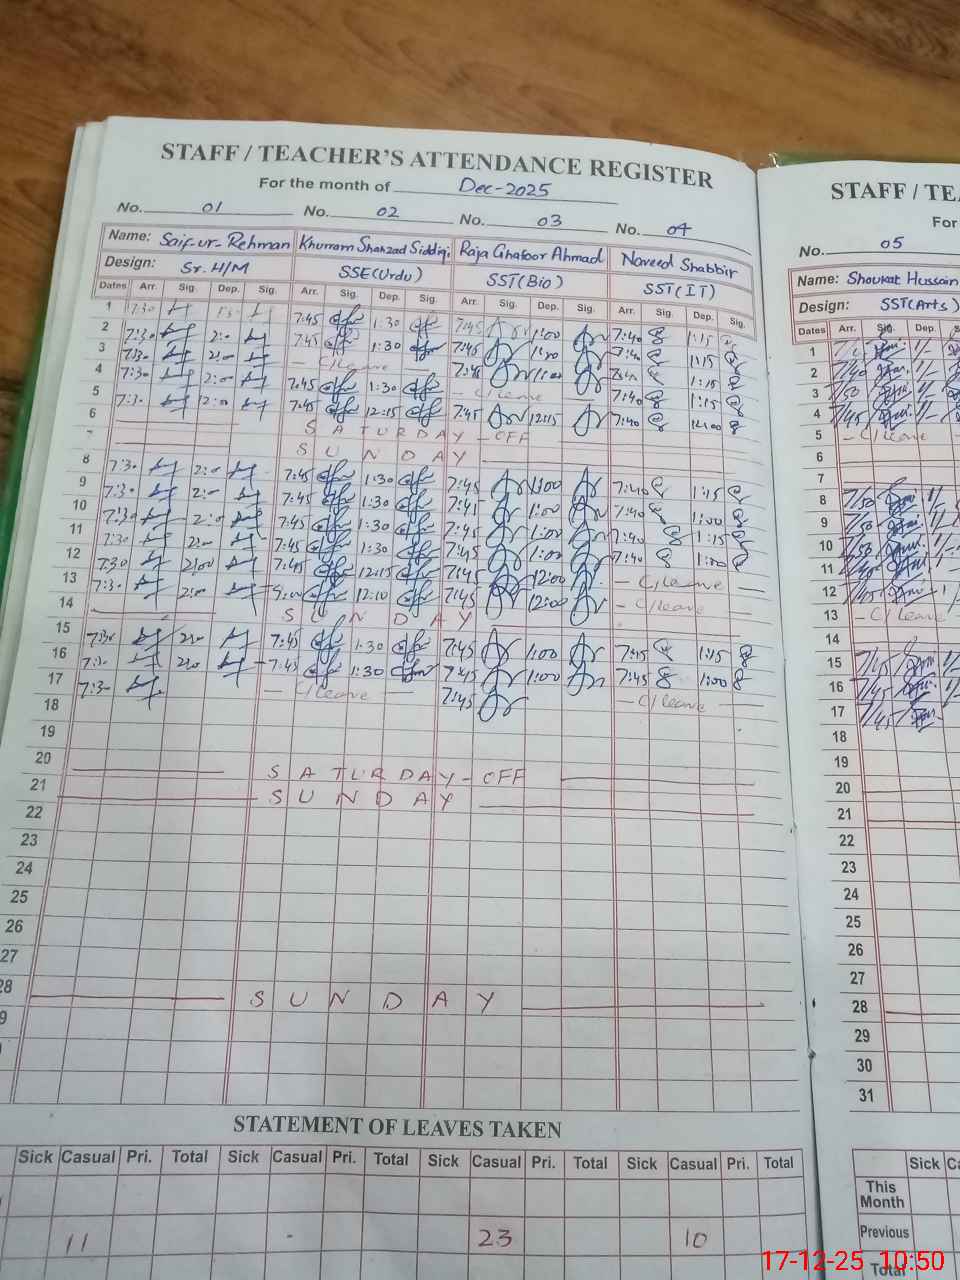 STAFF / TEACHER'S ATTENDANCE REGISTER
For the month of Dec-2025
No. 01 No. 02 No. 03 No. 04
Name: Saif-ur-Rehman Khurram Shahzad Siddiqi Raja Ghafoor Ahmad Naveed Shabbir
Design: Sr. H/M SSE(Urdu) SST(Bio) SST(IT)
Dates Arr. Sig. Dep. Sig. Arr. Sig. Dep. Sig. Arr. Sig. Dep. Sig. Arr. Sig. Dep. Sig.
1 7:30 7:45 1:30 7:45 1:00 7:40 1:15
2 7:30 2:00 7:45 1:30 7:45 7:40 1:15
3 7:30 2:00 - C/leave - 7:45 1:15
4 7:30 2:00 7:45 1:30 - C/leave 7:40 1:15
5 7:30 12:00 7:45 12:15 7:45 12:15 7:40 12:00
6 SATURDAY-OFF
7 SUNDAY
8 7:30 2:00 7:45 1:30 7:45 1:00 7:40 1:15
9 7:30 2:00 7:45 1:30 7:41 1:00 7:40 1:00
10 7:30 2:00 7:45 1:30 7:45 1:00 7:40 1:15
11 7:30 2:00 7:45 1:30 7:45 1:00 7:40 1:00
12 7:30 2:00 7:45 12:15 7:45 12:00 - C/leave -
13 7:30 2:00 9:00 12:10 7:45 12:00 - C/leave -
14 SUNDAY
15 7:30 2:00 7:45 1:30 7:45 1:00 7:45 1:15
16 7:30 2:00 7:45 1:30 7:45 1:00 7:45 1:00
17 7:30 - C/leave - 7:45 - C/leave -
18
19
20 SATURDAY-OFF
21 SUNDAY
22
23
24
25
26
27
28 SUNDAY
9
STATEMENT OF LEAVES TAKEN
Sick Casual Pri. Total Sick Casual Pri. Total Sick Casual Pri. Total Sick Casual Pri. Total
11 - 23 10
STAFF / TEA
For
No. 05
Name: Shoukat Hussain
Design: SST(Arts)
Dates Arr. Sig. Dep. S
1
2 7/40 1/-
3 7/50 1/-
4 7/45 1/-
5 - C/leave -
6
7
8 7/50 1/-
9 7/50 1/-
10 7/50
11 7/45 1/-
12 7/45 1/
13 - C/leave -
14
15 7/45
16 7/45
17 7/45
18
19
20
21
22
23
24
25
26
27
28
29
30
31
Sick Ca
This Month
Previous
Total
17-12-25 10:50